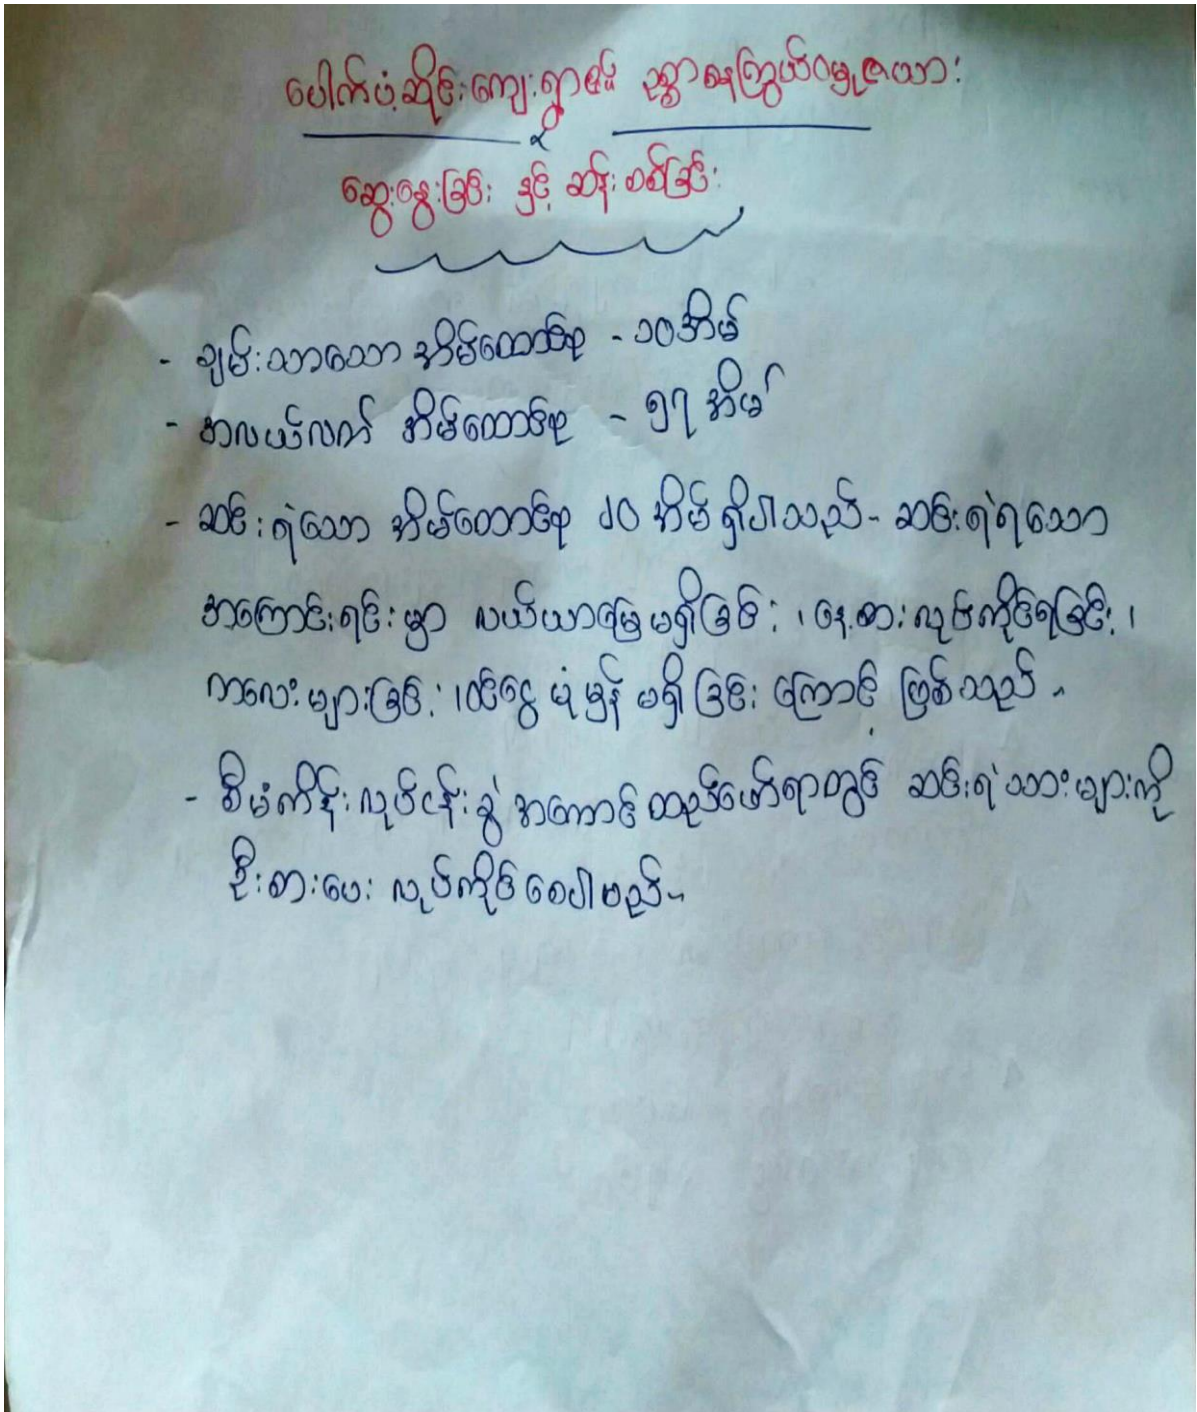 ပေါက်ပံ့ဆိုင်းကျေးရွာ၏ ဥစ္စာဓနကြွယ်ဝမှုဇယား
ဆွေးနွေးခြင်း နှင့် ဆန်းစစ်ခြင်း
- ချမ်းသာသော အိမ်ထောင်စု - ၁၀အိမ်
- အလယ်လတ် အိမ်ထောင်စု - ၅၇ အိမ်
- ဆင်းရဲသော အိမ်ထောင်စု ၂၀ အိမ် ရှိပါသည်။ ဆင်းရဲရသော
အကြောင်းရင်းမှာ လယ်ယာမြေမရှိခြင်း ၊ နေ့စားလုပ်ကိုင်ရခြင်း ၊
ကလေးများခြင်း ၊ ဝင်ငွေ ပုံမှန် မရှိခြင်း ကြောင့် ဖြစ်သည် ။
- စီမံကိန်းလုပ်ငန်းခွဲ အကောင်ထည်ဖော်ရာတွင် ဆင်းရဲသားများကို
ဦးစားပေး လုပ်ကိုင်စေပါမည်။